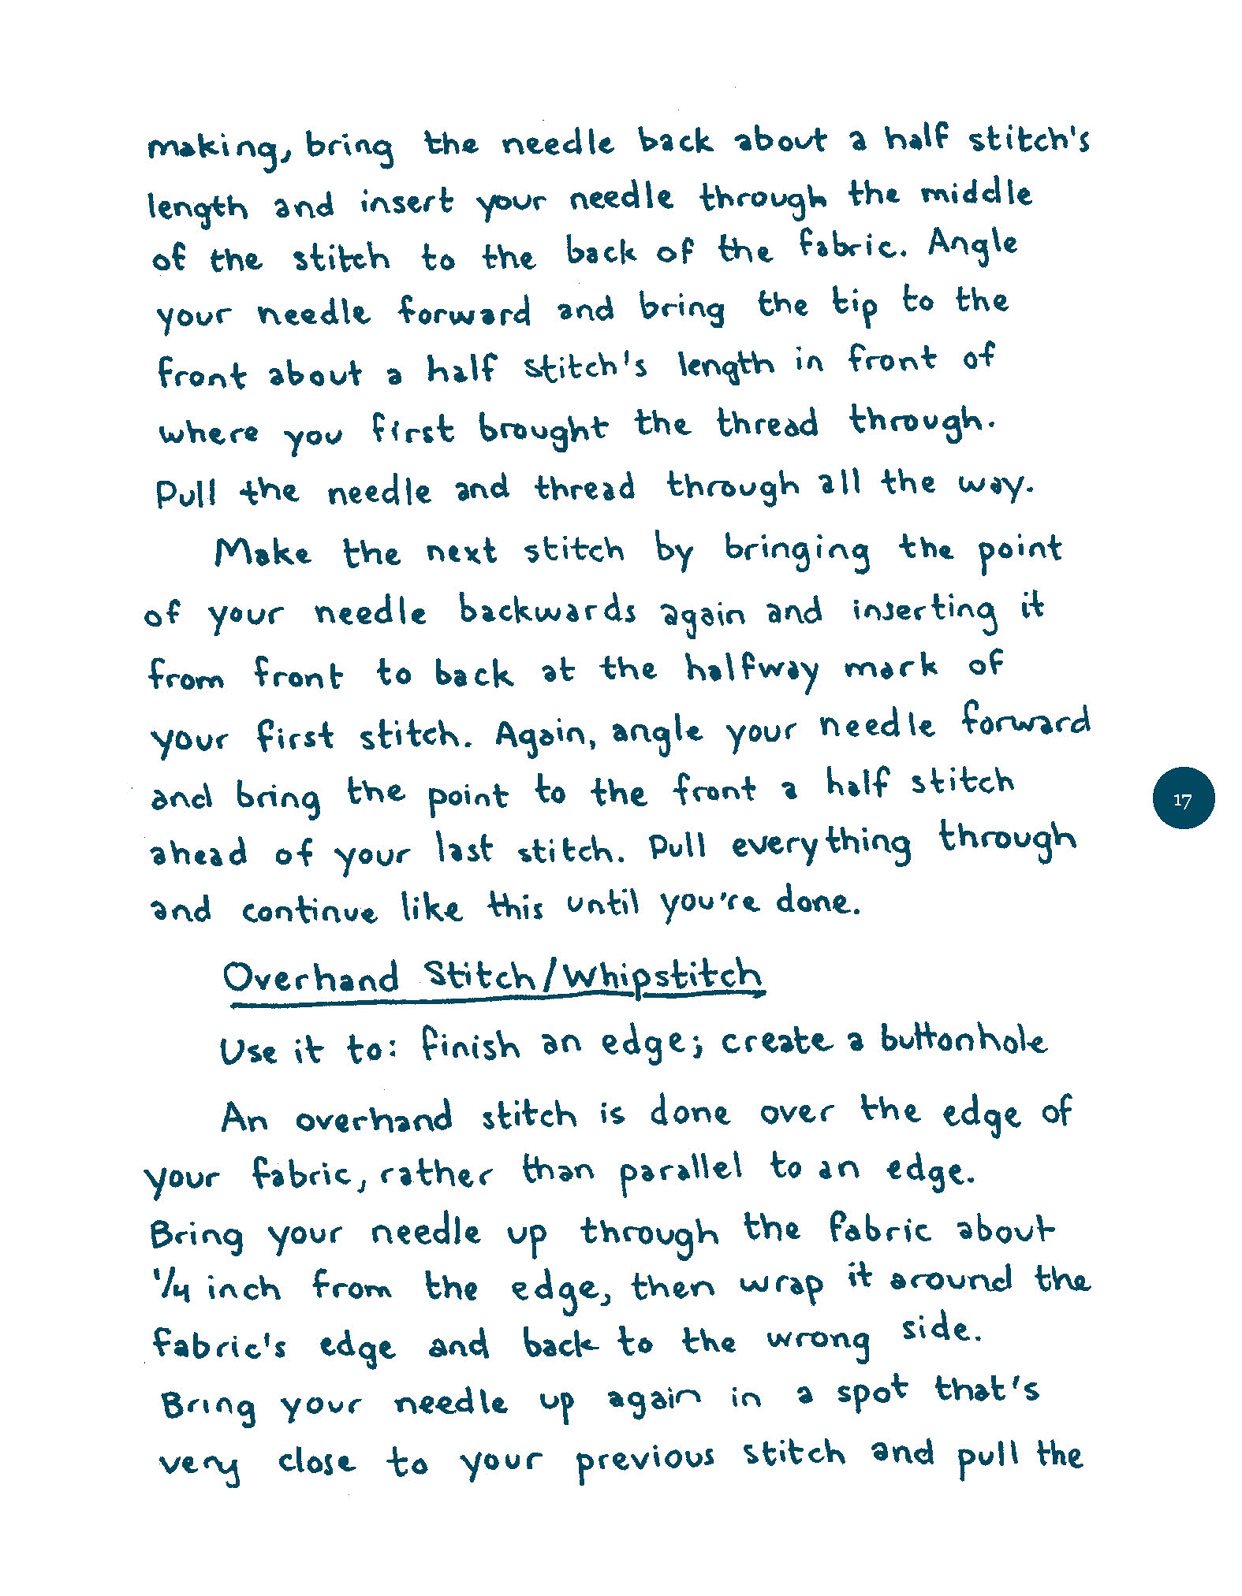 making, bring the needle back about a half stitch's
length and insert your needle through the middle
of the stitch to the back of the fabric. Angle
your needle forward and bring the tip to the
front about a half stitch's length in front of
where you first brought the thread through.
Pull the needle and thread through all the way.
Make the next stitch by bringing the point
of your needle backwards again and inserting it
from front to back at the halfway mark of
your first stitch. Again, angle your needle forward
and bring the point to the front a half stitch
17
ahead of your last stitch. Pull everything through
and continue like this until you're done.
Overhand Stitch/Whipstitch
Use it to: finish an edge; create a buttonhole
An overhand stitch is done over the edge of
your fabric, rather than parallel to an edge.
Bring your needle up through the fabric about
1/4 inch from the edge, then wrap it around the
fabric's edge and back to the wrong side.
Bring your needle up again in a spot that's
very close to your previous stitch and pull the